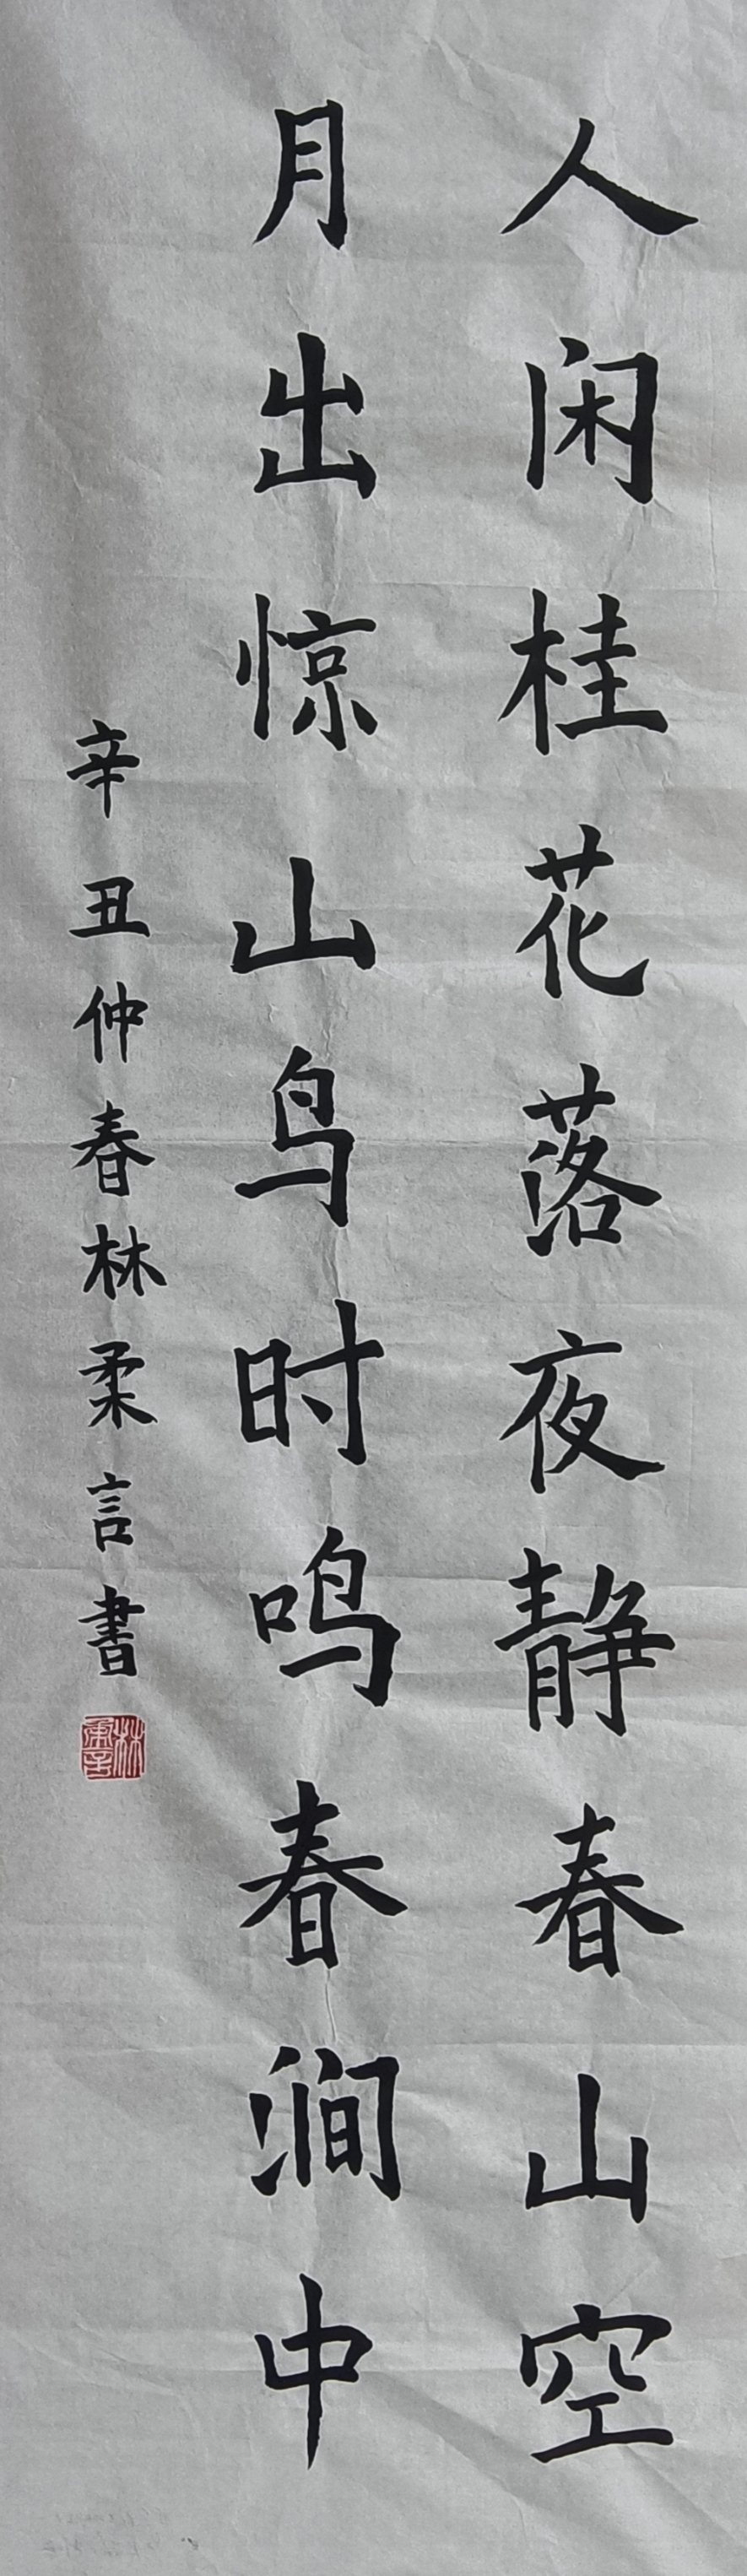 人闲桂花落夜静春山空
月出惊山鸟时鸣春涧中
辛丑仲春林柔言書